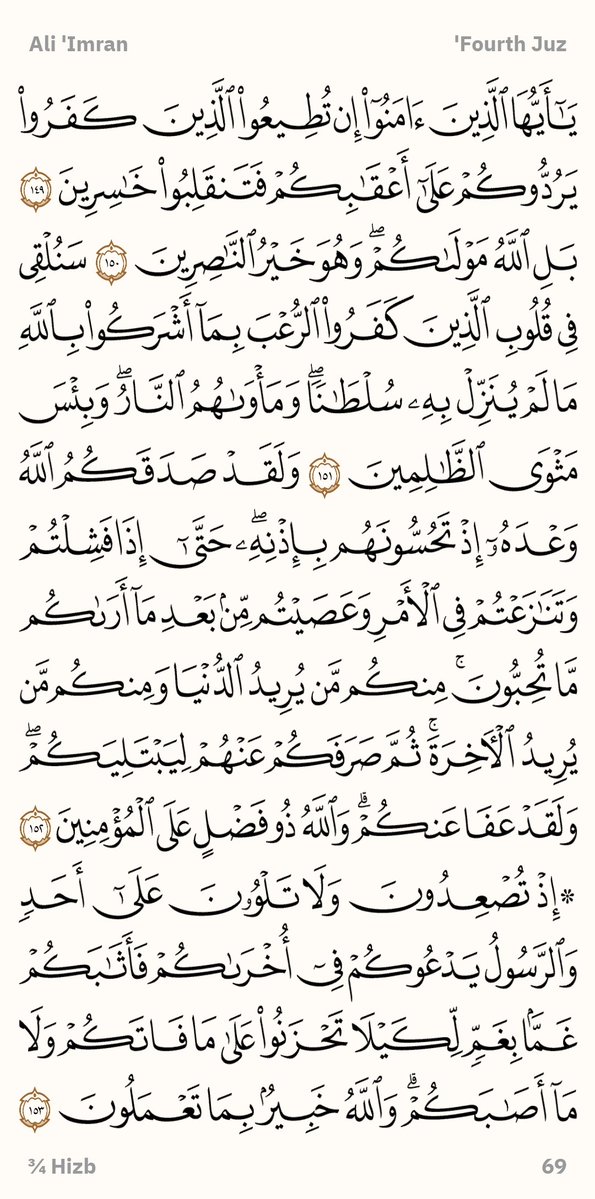 Ali 'Imran
'Fourth Juz
يَـٰٓأَيُّهَا ٱلَّذِينَ ءَامَنُوٓا۟ إِن تُطِيعُوا۟ ٱلَّذِينَ كَفَرُوا۟
يَرُدُّوكُمْ عَلَىٰٓ أَعْقَـٰبِكُمْ فَتَنقَلِبُوا۟ خَـٰسِرِينَ ١٤٩
بَلِ ٱللَّهُ مَوْلَىٰكُمْ ۖ وَهُوَ خَيْرُ ٱلنَّـٰصِرِينَ ١٥٠ سَنُلْقِى
فِى قُلُوبِ ٱلَّذِينَ كَفَرُوا۟ ٱلرُّعْبَ بِمَآ أَشْرَكُوا۟ بِٱللَّهِ
مَا لَمْ يُنَزِّلْ بِهِۦ سُلْطَـٰنًا ۖ وَمَأْوَىٰهُمُ ٱلنَّارُ ۖ وَبِئْسَ
مَثْوَى ٱلظَّـٰلِمِينَ ١٥١ وَلَقَدْ صَدَقَكُمُ ٱللَّهُ
وَعْدَهُۥٓ إِذْ تَحُسُّونَهُم بِإِذْنِهِۦ ۖ حَتَّىٰٓ إِذَا فَشِلْتُمْ
وَتَنَـٰزَعْتُمْ فِى ٱلْأَمْرِ وَعَصَيْتُم مِّنۢ بَعْدِ مَآ أَرَىٰكُم
مَّا تُحِبُّونَ ۚ مِنكُم مَّن يُرِيدُ ٱلدُّنْيَا وَمِنكُم مَّن
يُرِيدُ ٱلْـَٔاخِرَةَ ۚ ثُمَّ صَرَفَكُمْ عَنْهُمْ لِيَبْتَلِيَكُمْ ۖ
وَلَقَدْ عَفَا عَنكُمْ ۗ وَٱللَّهُ ذُو فَضْلٍ عَلَى ٱلْمُؤْمِنِينَ ١٥٢
* إِذْ تُصْعِدُونَ وَلَا تَلْوُۥنَ عَلَىٰٓ أَحَدٍ
وَٱلرَّسُولُ يَدْعُوكُمْ فِىٓ أُخْرَىٰكُمْ فَأَثَـٰبَكُمْ
غَمًّۢا بِغَمٍّ لِّكَيْلَا تَحْزَنُوا۟ عَلَىٰ مَا فَاتَكُمْ وَلَا
مَآ أَصَـٰبَكُمْ ۗ وَٱللَّهُ خَبِيرٌۢ بِمَا تَعْمَلُونَ ١٥٣
¾ Hizb
69